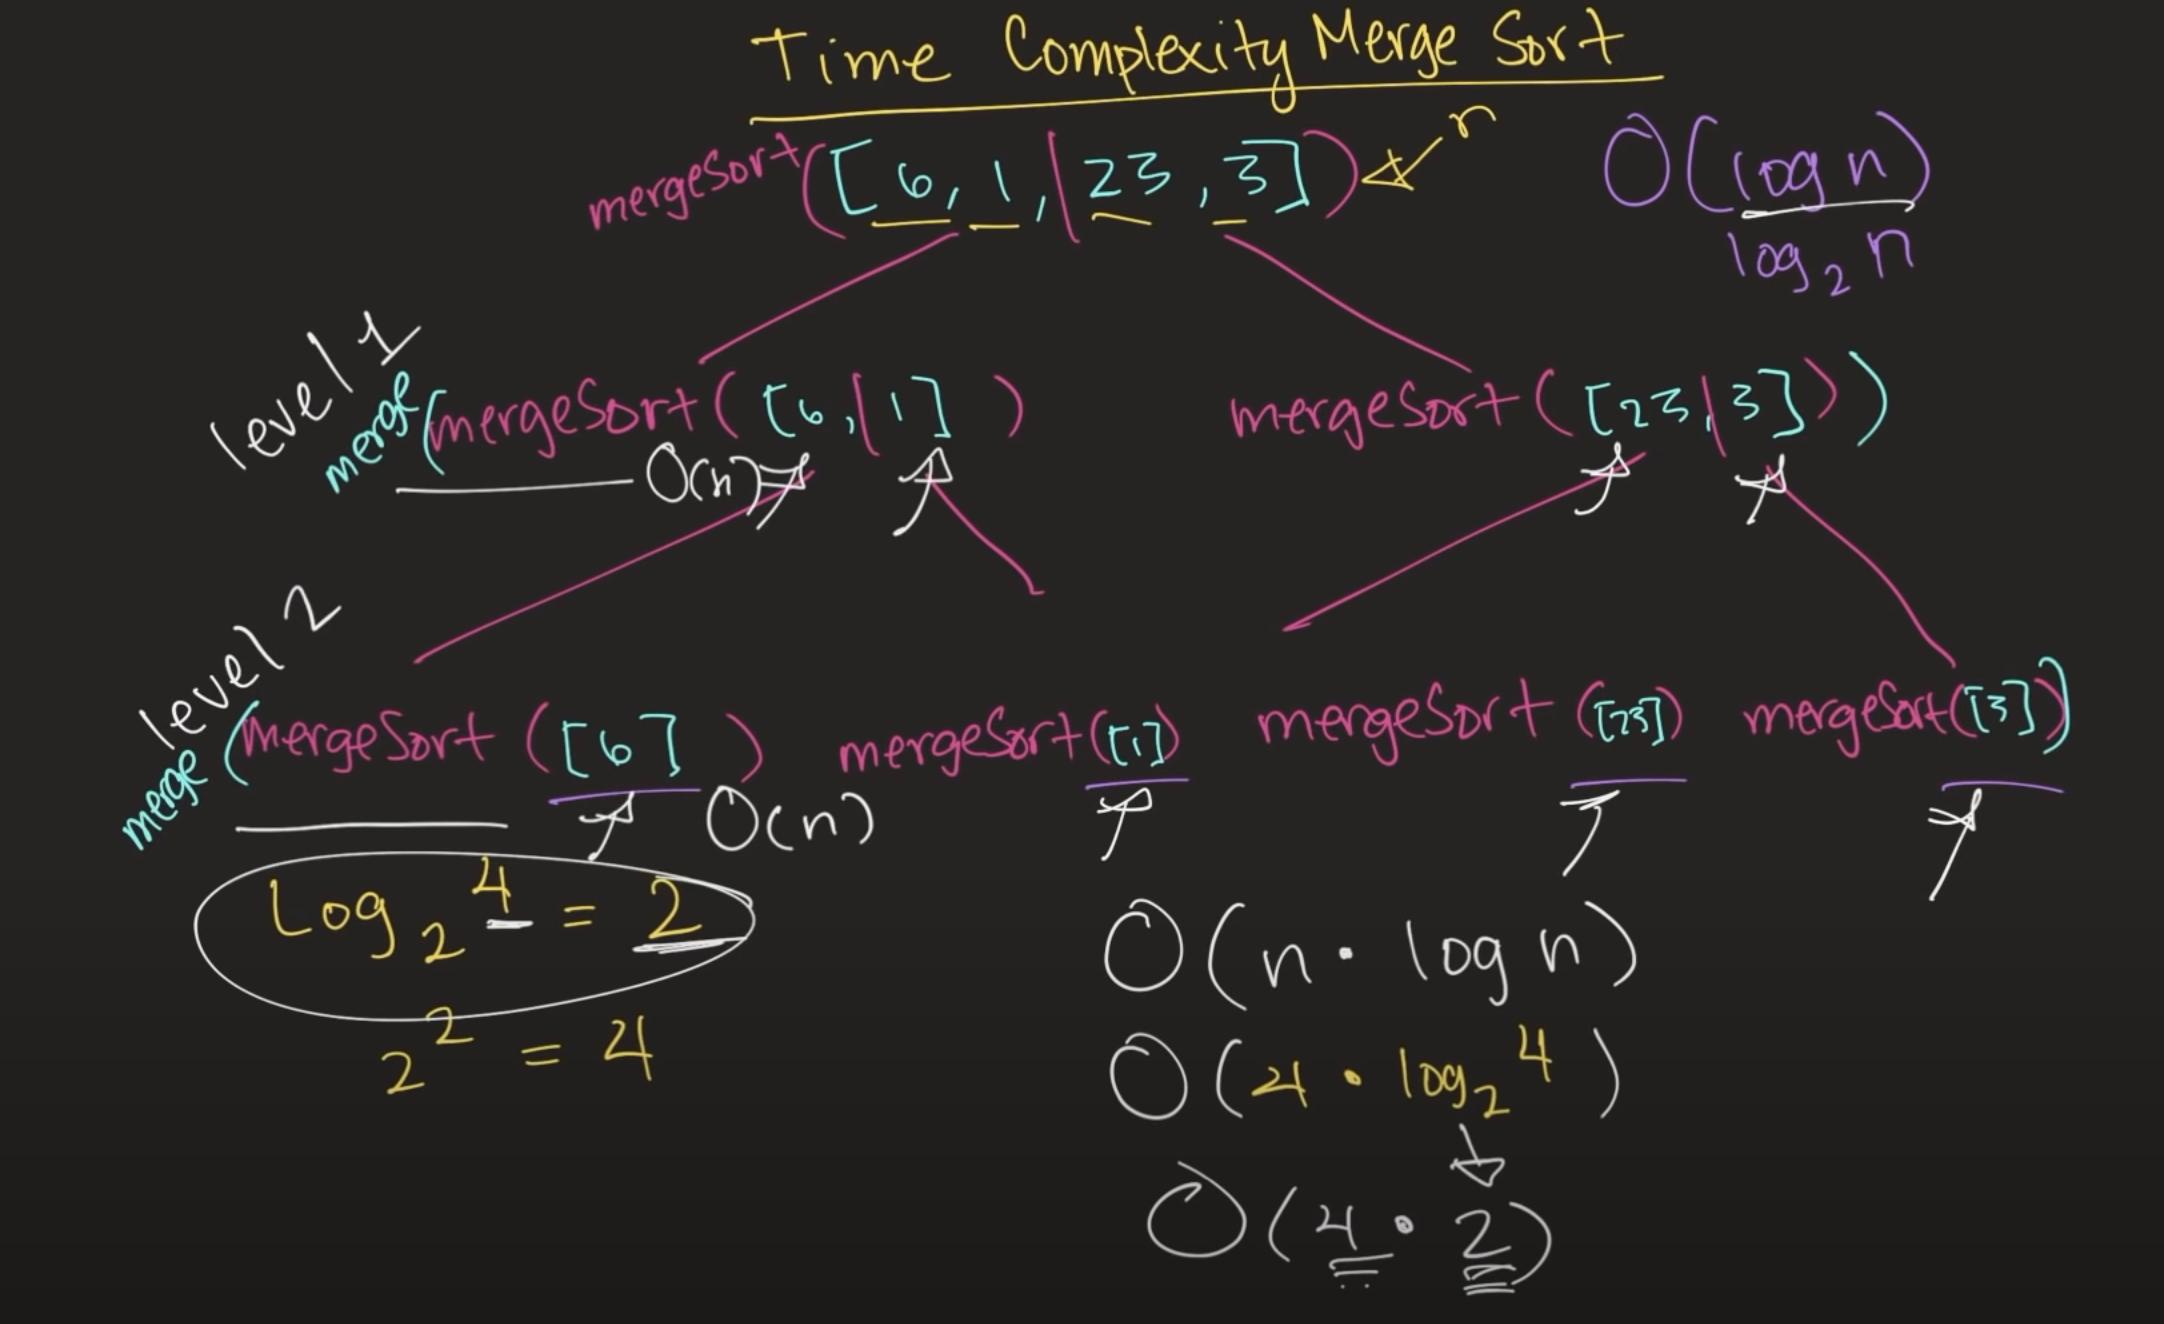 Time Complexity Merge Sort
mergeSort([6, 1, | 23, 3]) n
O(log n)
log₂ n
level 1
merge(mergeSort([6, | 1]) mergeSort([23, | 3]))
O(n)
level 2
merge(mergeSort([6]) mergeSort([1]) mergeSort([23]) mergeSort([3]))
O(n)
Log₂ 4 = 2
2² = 4
O(n · log n)
O(4 · log₂ 4)
O(4 · 2)